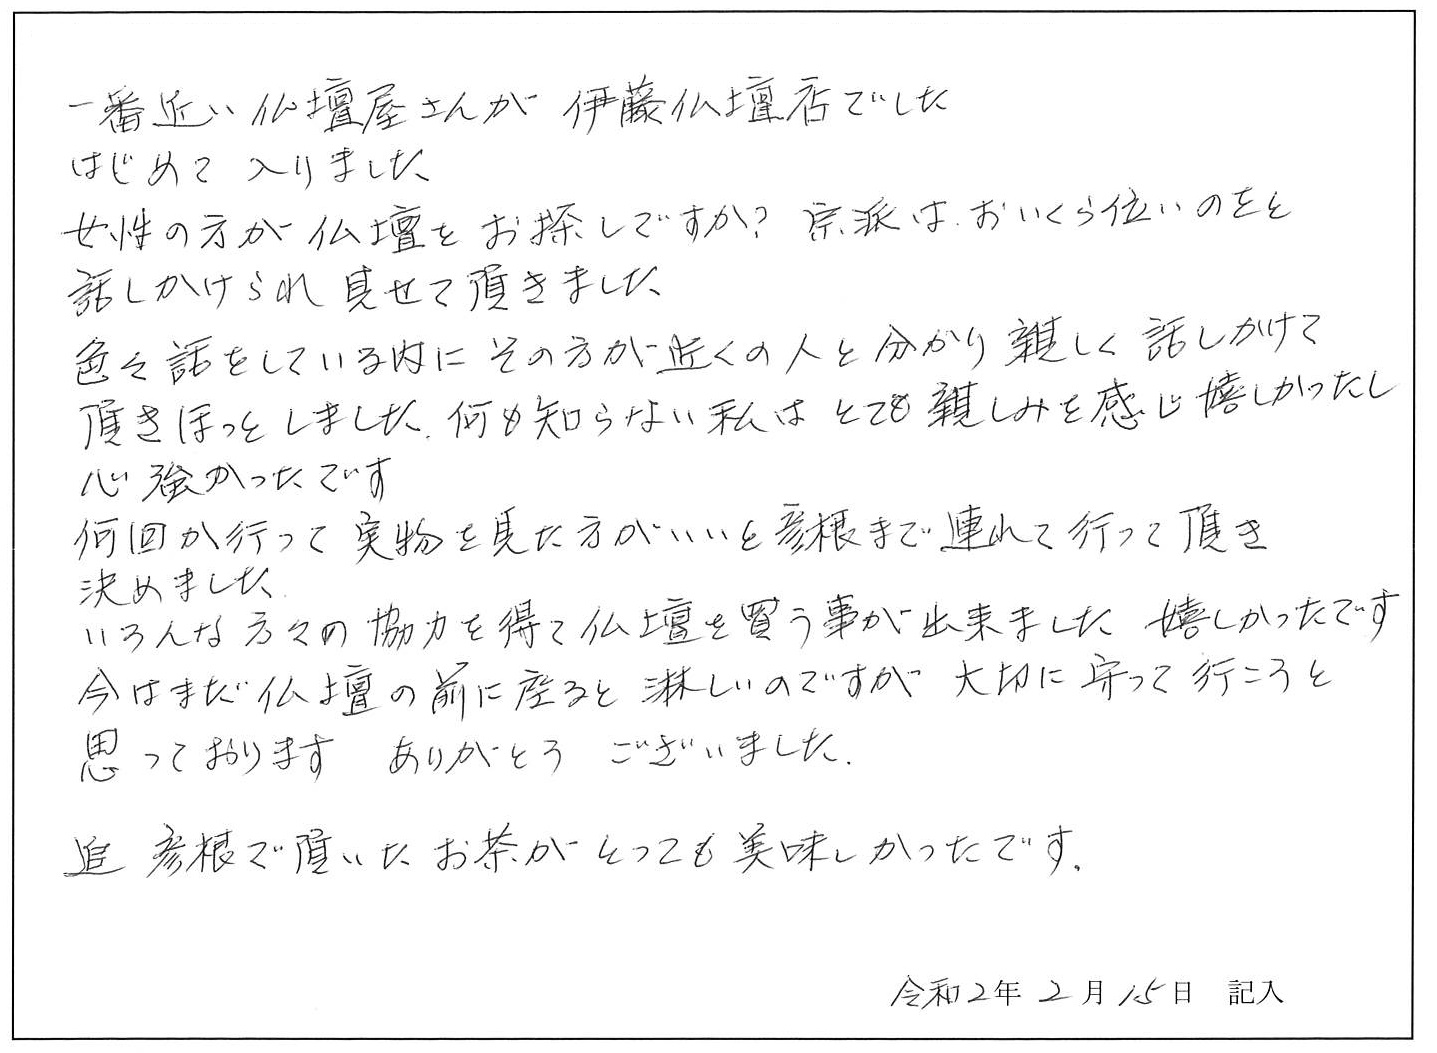 一番近い仏壇屋さんが 伊藤仏壇店でした
はじめて 入りました
女性の方が 仏壇を お探しですか? 宗派は.おいくら位いのをと
話しかけられ 見せて頂きました
色々話をしている内に その方が近くの人と分かり 親しく 話しかけて
頂きほっとしました.何も知らない私は とても親しみを感じ嬉しかったし
心強かったです
何回か行って 実物を見た方がいいと彦根まで連れて行って頂き
決めました.
いろんな方々の協力を得て仏壇を買う事が出来ました 嬉しかったです
今はまだ仏壇の前に座ると 淋しいのですが 大切に守って行こうと
思っております ありがとう ございました.
追 彦根で頂いた お茶が とっても美味しかったです.
令和2年 2月15日 記入